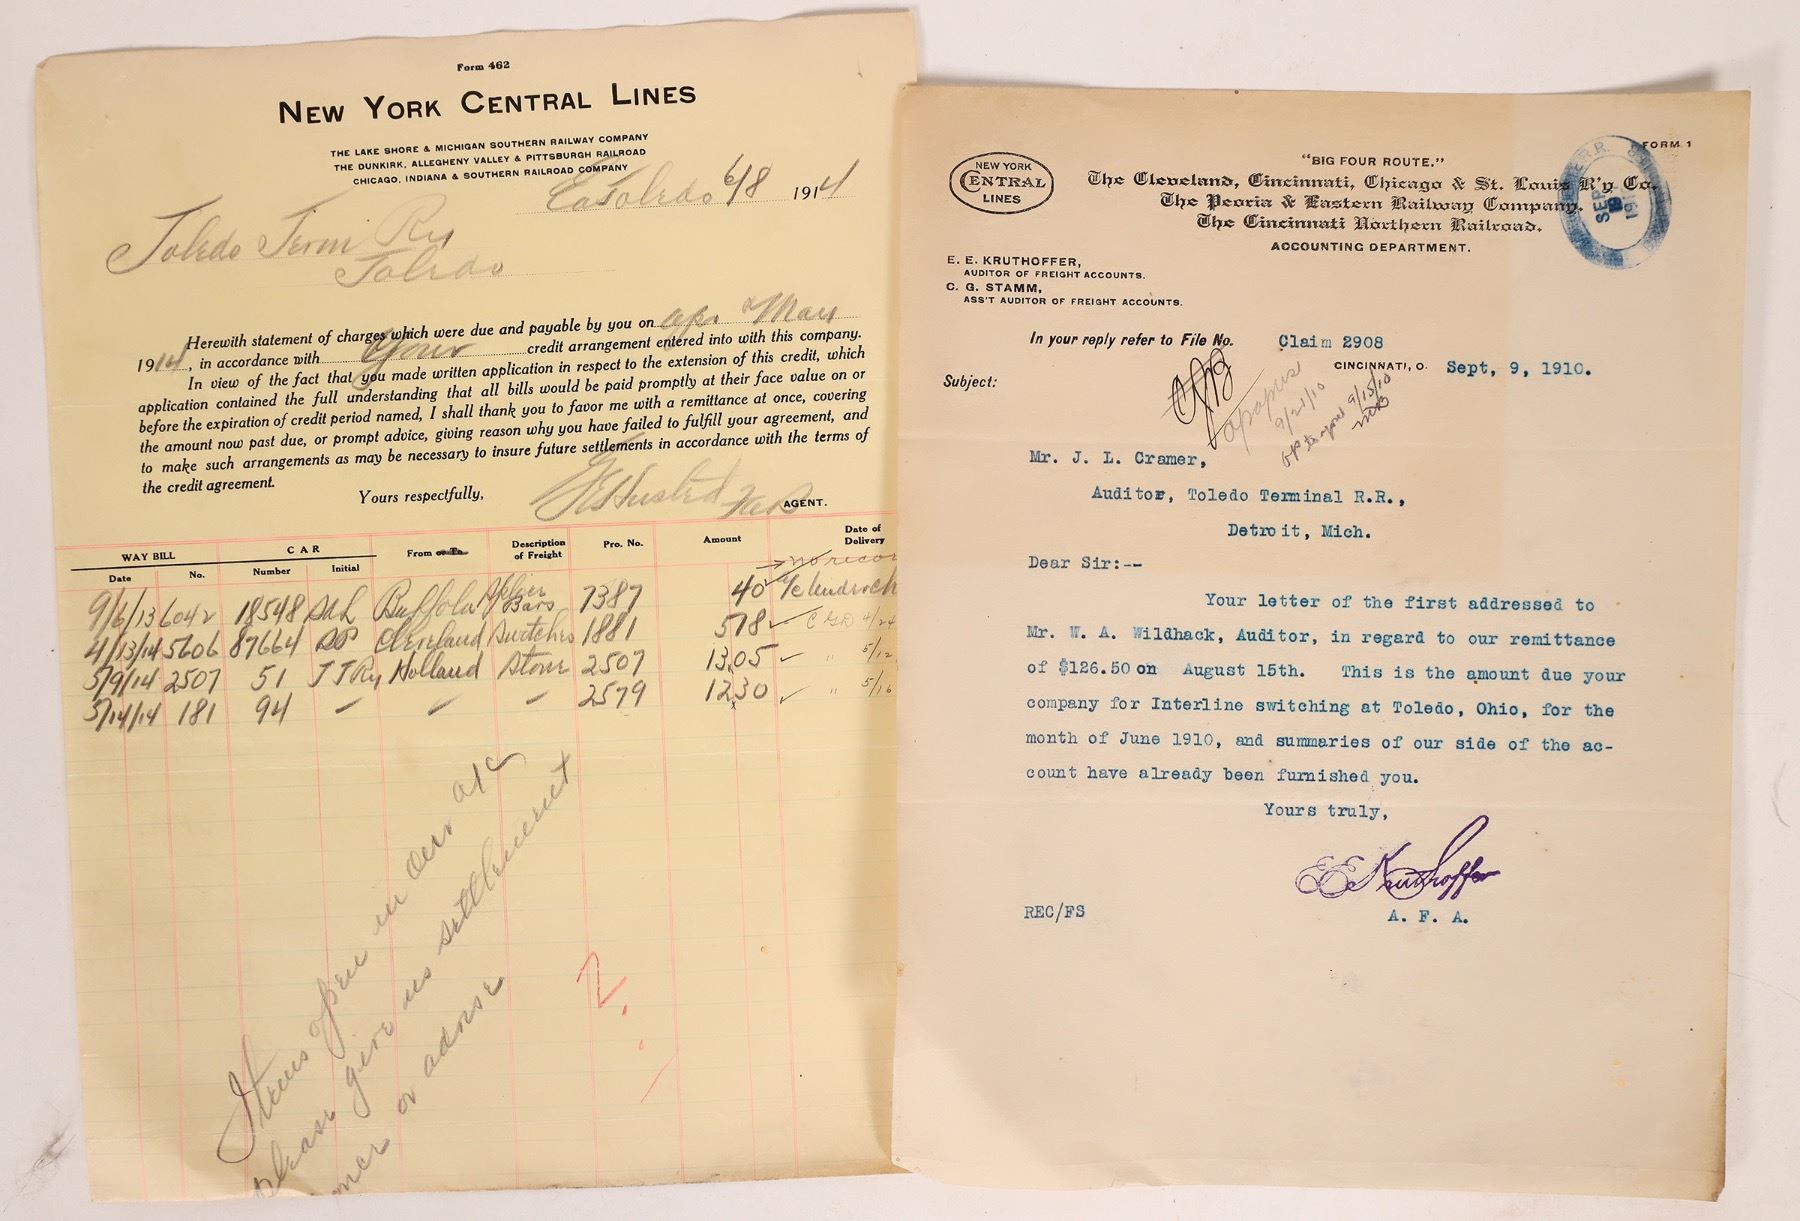 Form 462
NEW YORK CENTRAL LINES
THE LAKE SHORE & MICHIGAN SOUTHERN RAILWAY COMPANY
THE DUNKIRK, ALLEGHENY VALLEY & PITTSBURGH RAILROAD
CHICAGO, INDIANA & SOUTHERN RAILROAD COMPANY
Ea Toledo 6/8 1914
Toledo Term Ry
Toledo
Herewith statement of charges which were due and payable by you on apr & May
1914, in accordance with your credit arrangement entered into with this company.
In view of the fact that you made written application in respect to the extension of this credit, which
application contained the full understanding that all bills would be paid promptly at their face value on or
before the expiration of credit period named, I shall thank you to favor me with a remittance at once, covering
the amount now past due, or prompt advice, giving reason why you have failed to fulfill your agreement, and
to make such arrangements as may be necessary to insure future settlements in accordance with the terms of
the credit agreement.
Yours respectfully,
Husted
AGENT.
WAY BILL CAR From or To Description of Freight Pro. No. Amount Date of Delivery
Date No. Number Initial
no recor
9/6/13 6042 18548 Buffalo Bars 7387 40
4/13/14 5606 87664 Cleveland Switches 1881 578 4/24
5/9/14 2507 51 TTRy Holland Stone 2507 1305 " 5/12
5/14/14 181 94 - - - 2579 1230 " 5/16
Items open in our a/c
please give us settlement
or advise
2.
FORM 1
NEW YORK
CENTRAL
LINES
"BIG FOUR ROUTE."
The Cleveland, Cincinnati, Chicago & St. Louis R'y Co.
The Peoria & Eastern Railway Company.
The Cincinnati Northern Railroad.
ACCOUNTING DEPARTMENT.
SEP
E. E. KRUTHOFFER,
AUDITOR OF FREIGHT ACCOUNTS.
C. G. STAMM,
ASS'T AUDITOR OF FREIGHT ACCOUNTS.
In your reply refer to File No. Claim 2908
CINCINNATI, O. Sept, 9, 1910.
Subject:
9/21/10
9/15/10
Mr. J. L. Cramer,
Auditor, Toledo Terminal R.R.,
Detroit, Mich.
Dear Sir:--
Your letter of the first addressed to
Mr. W. A. Wildhack, Auditor, in regard to our remittance
of $126.50 on August 15th. This is the amount due your
company for Interline switching at Toledo, Ohio, for the
month of June 1910, and summaries of our side of the ac-
count have already been furnished you.
Yours truly,
EE Kruthoffer
REC/FS
A. F. A.